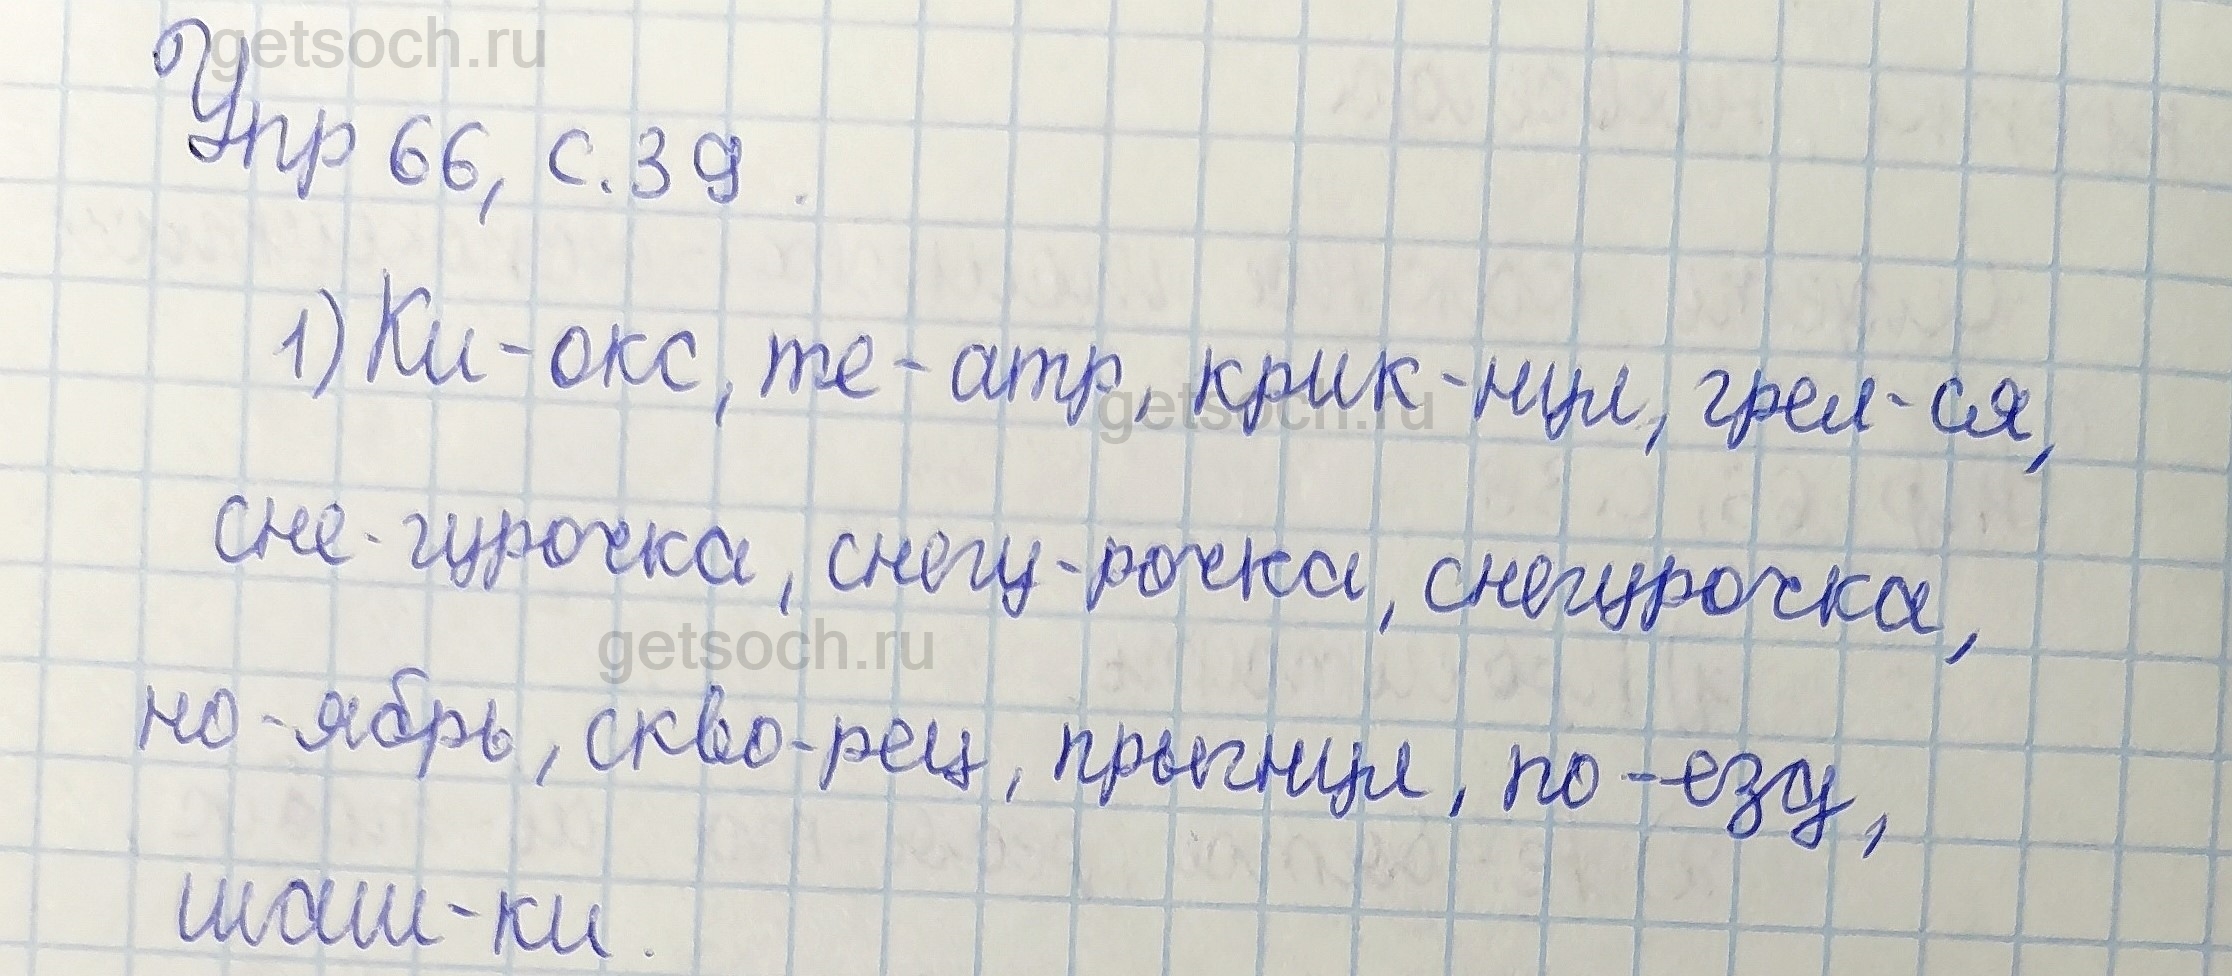 getsoch.ru
Упр 66, с. 39.
1) Ки-окс, те-атр, крик-нул, грел-ся,
getsoch.ru
сне-гурочка, снегу-рочка, снегурочка,
getsoch.ru
но-ябрь, скво-рец, прыгнул, по-езд,
шаш-ки.